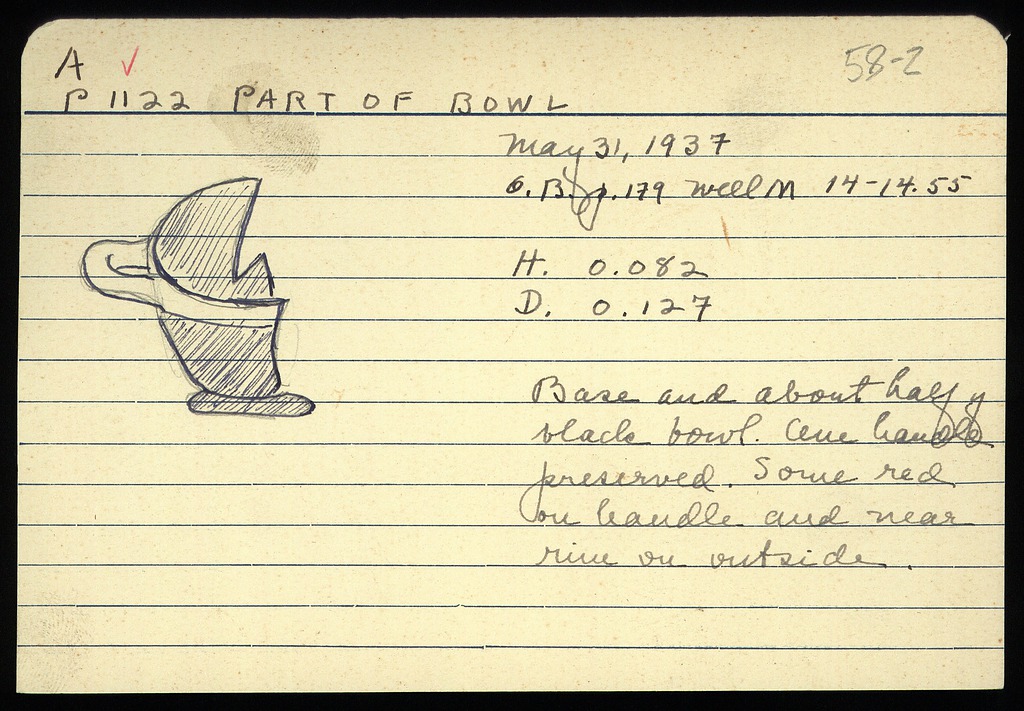 A ✓
58-2
P 1122 PART OF BOWL
May 31, 1937
O.B. p.179 Well M 14-14.55
H. 0.082
D. 0.127
Base and about half of
black bowl. One handle
preserved. Some red
on handle and near
rim on outside.